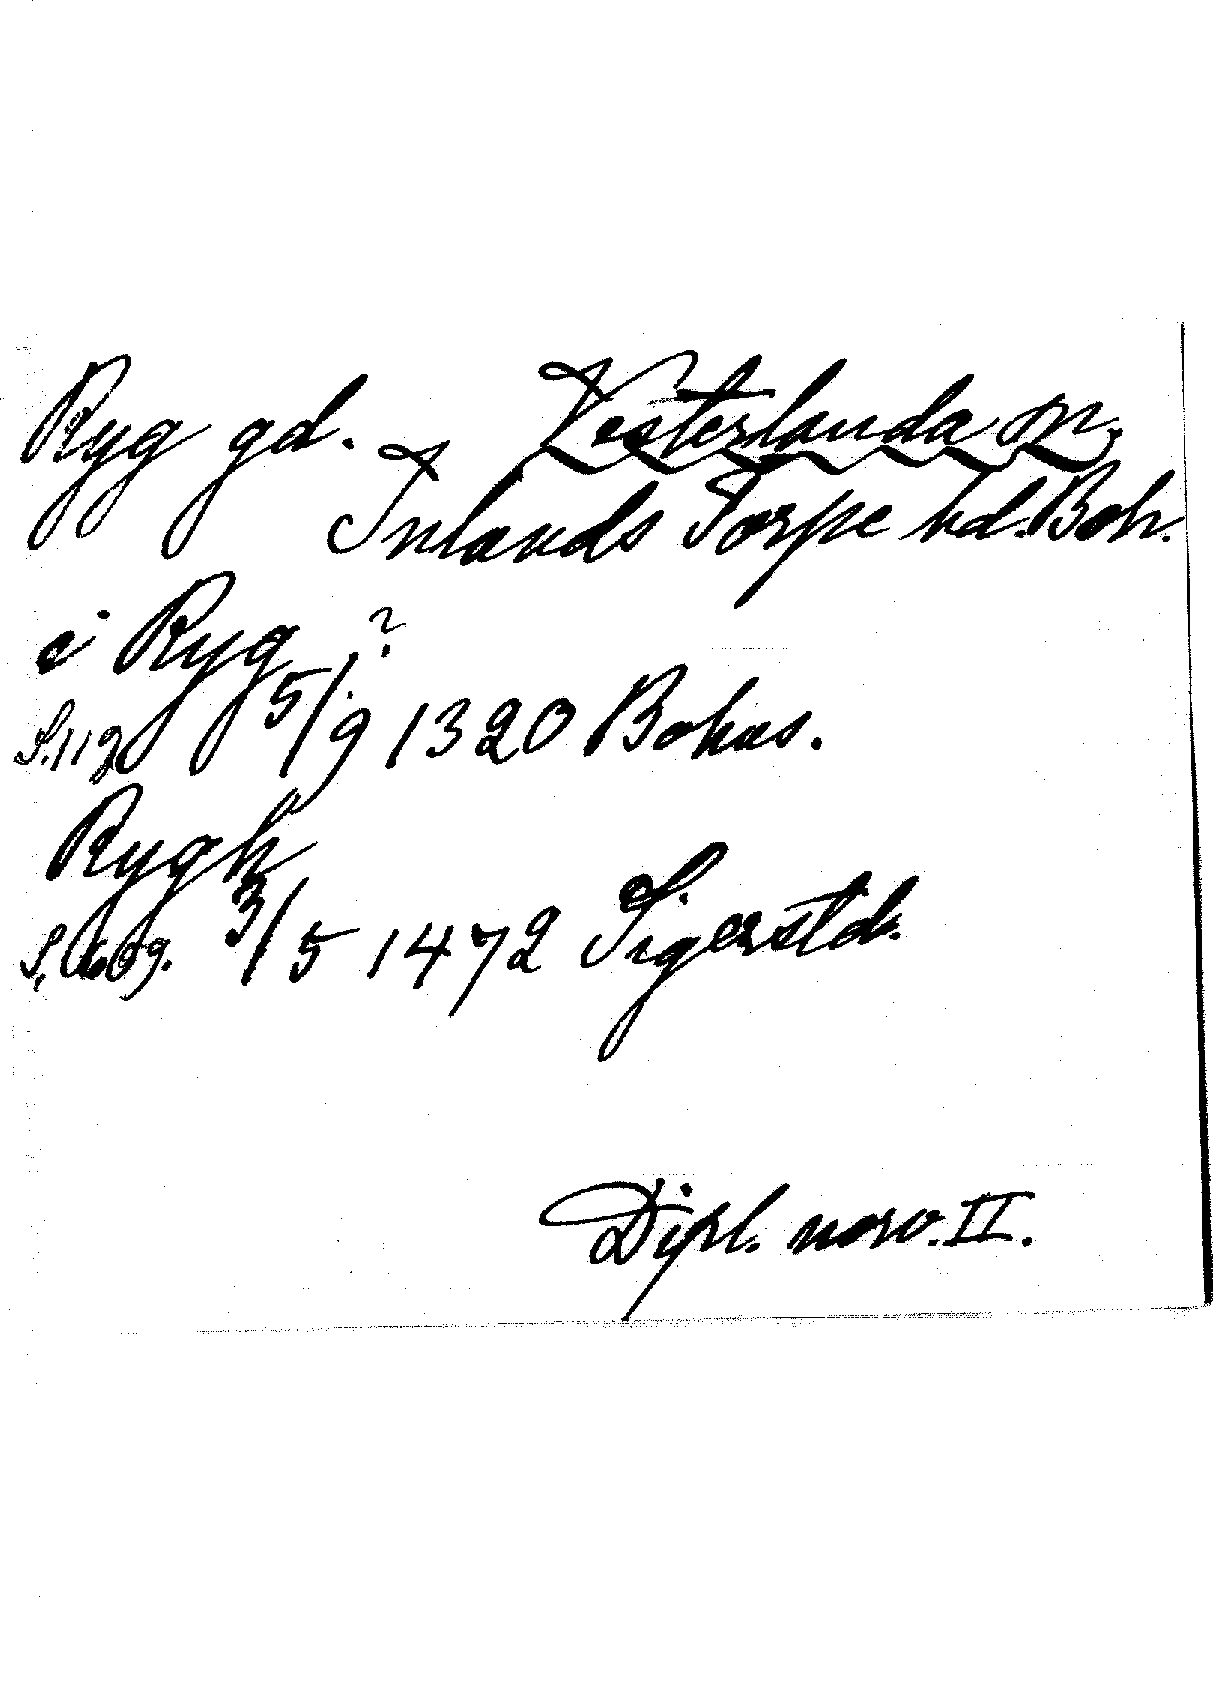 Ryg gd. Vesterlanda sn.
Inlands Torpe hd. Boh.
i Ryg ?
S. 112 5/9 1320 Bohus.
Rygh
S. 669. 3/5 1472 Sigerstd.
Dipl. norv. II.